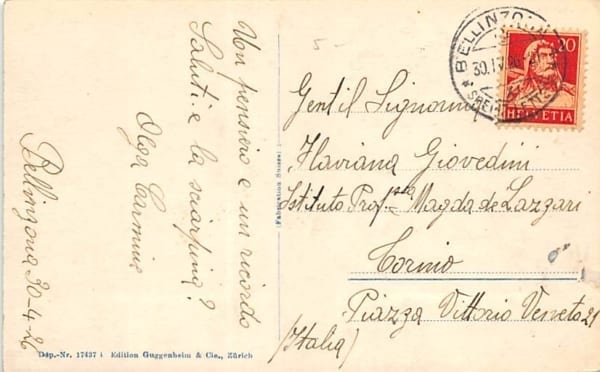 Un pensiero e un ricordo
Saluti. e la sciarpina?
Olga Carmine
Bellinzona 30-4-26
Gentil Signorina
Flaviana Giovedini
Istituto Prof.ssa Magda de Lazzari
Torino
Piazza Vittorio Veneto 21
(Italia)
BELLINZONA
30.IV.26
20
HELVETIA
(Fabrication Suisse)
Dép.-Nr. 17437 i Edition Guggenheim & Cie., Zürich